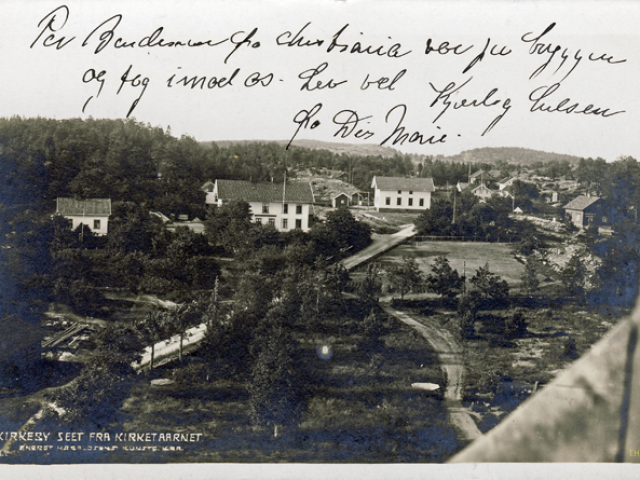 Per Bendixsen fra christiania var på bryggen
og tog imod os. Lev vel Kjærlig hilsen
fra Din Marie.
KIRKEBY SEET FRA KIRKETAARNET
ENERET